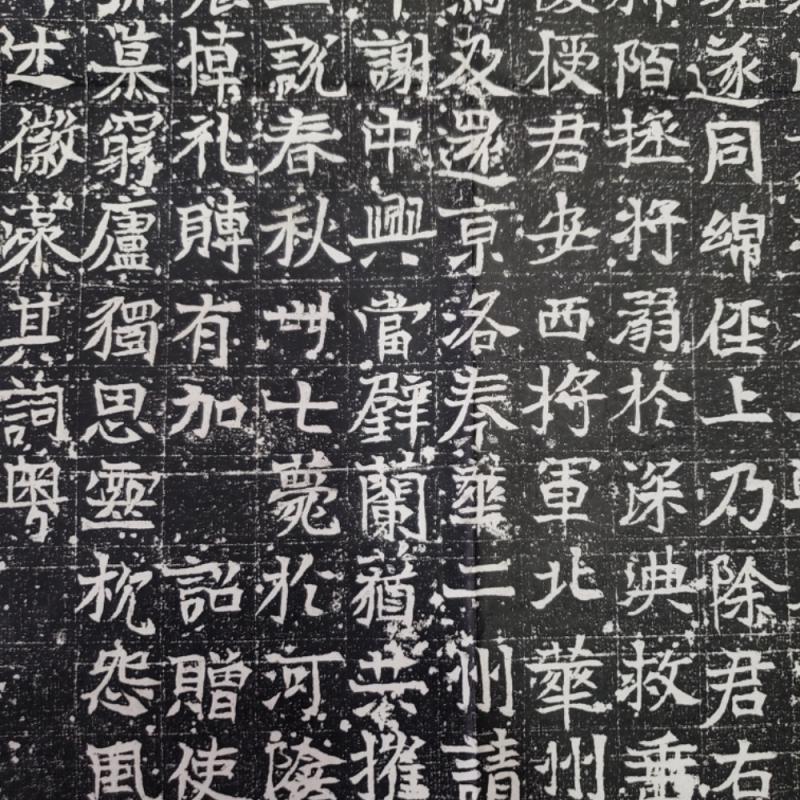 遂同綿上乃除君右
陌拯将溺於深典救垂
授君安西將軍北華州
及還京洛秦華二州請
謝中興當璧蘭蕕共摧
說春秋卌七薨於河陰
悼礼賻有加 詔贈使
慕窮廬獨思靈枕怨風
述徽藻其詞粤